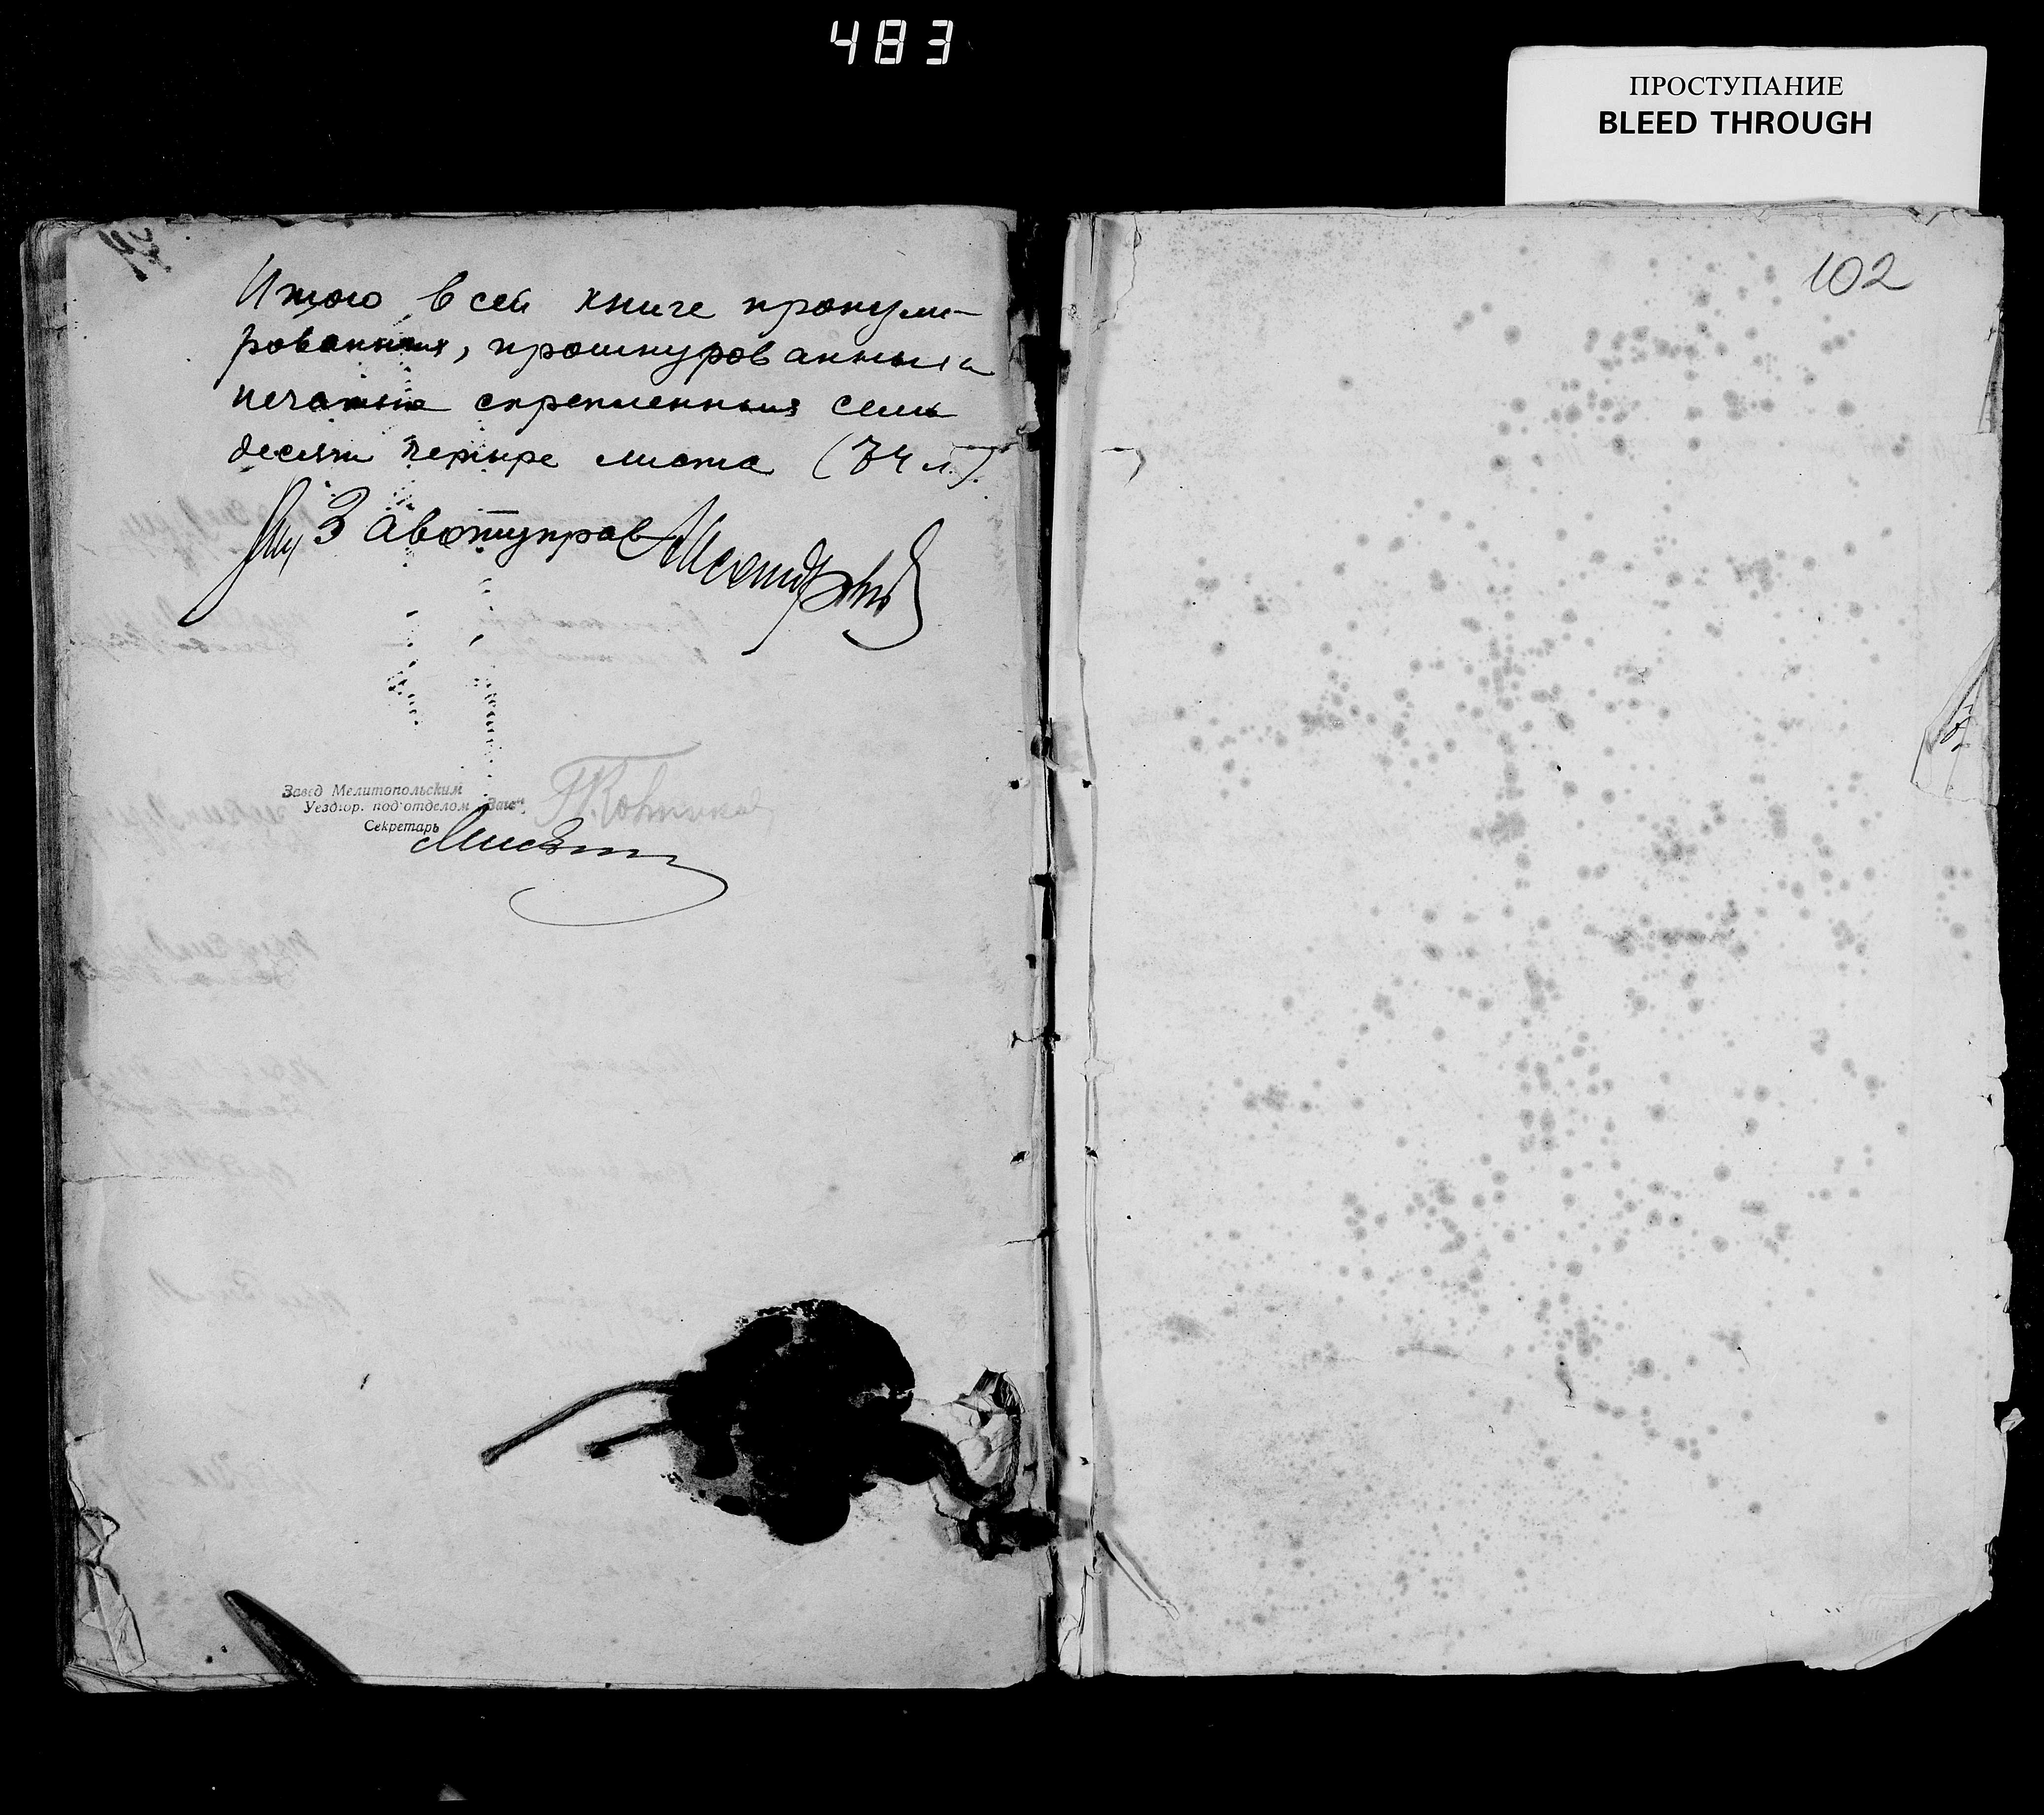 483
ПРОСТУПАНИЕ
BLEED THROUGH
102
Итого в сей книге пронуме-
рованных, прошнурованных и
печатью скрепленных семь
десят четыре листа (74 л).
Завотуправ
Завед Мелитопольским
Уездгор. под'отделом Загс
Секретарь